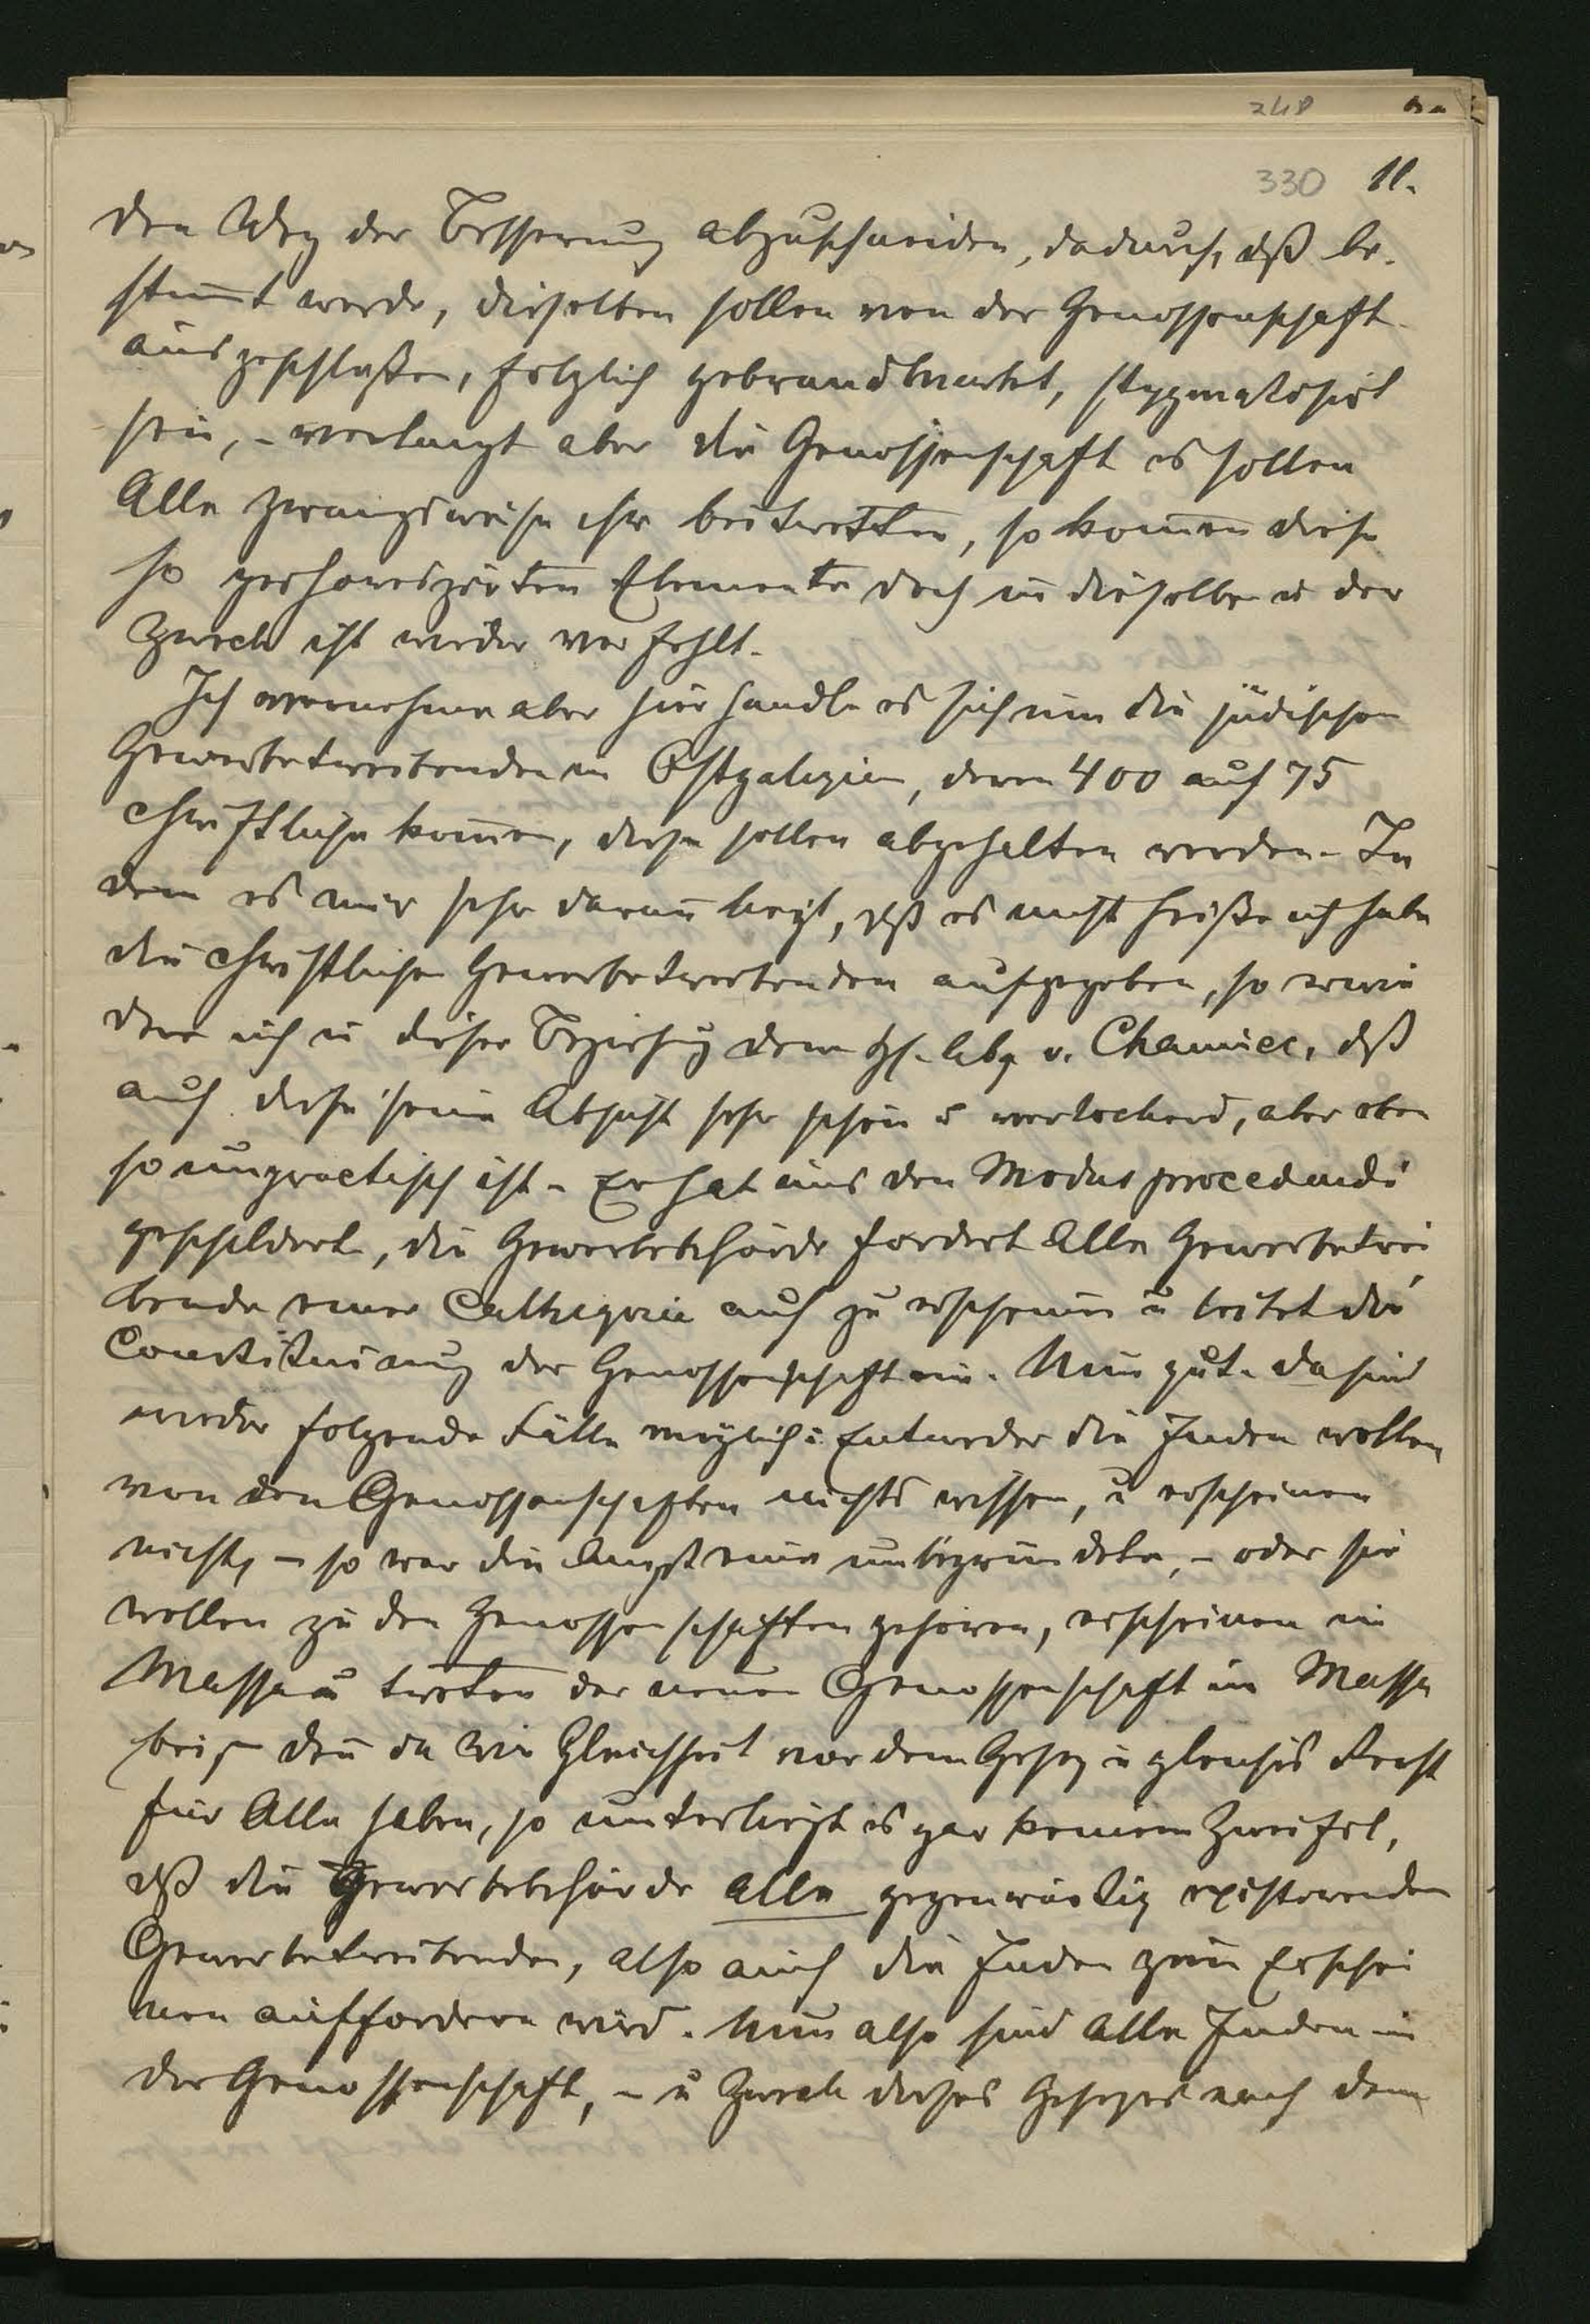 248
330 11.
den Weg der Besserung abzuschneiden, dadurch, dß be-
stimt werde, dieselben sollen von der Genossenschaft
ausgeschloßen, folglich gebrandmarkt, stygmatisirt
sein, - verlangt aber die Genossenschaft es sollen
Alle zwangsweise ihr beitretten, so komen diese
so Elemente doch in dieselbe u der
Zweck ist wieder verfehlt.
Ich vernehme aber hier handle es sich um die jüdischen
Gewerbetreibenden in Ostgalizien, deren 400 auf 75
christliche komen, diese sollen abgehalten werden. In
dem es mir sehr daran liegt, dß es nicht heiße ich habe
die christlichen Gewerbetreibenden aufgegeben, so erwie
dere ich in dieser Beziehung dem H. Abg v. Chamiec, dß
auch diese seine Absicht sehr schön u verlockend, aber eben
so unpractisch ist. - Er hat uns den Modus procedendi
geschildert, die Gewerbebehörde fordert Alle Gewerbetrei
bende einer Cathegorie auf zu erscheinen u leitet die
Constituirung der Genossenschaft ein. Nun gut. da sind
wieder folgende Fälle möglich: Entweder die Juden wollen
von den Genossenschaften nichts wissen, u erscheinen
nicht, - so war die Angst eine unbegründete, - oder sie
wollen zu den Genossenschaften gehören, erscheinen in
Masse u treten der neuen Genossenschaft in Masse
bei, - den da wir Gleichheit vor dem Gesez u gleiches Recht
für Alle haben, so unterliegt es gar keinem Zweifel,
dß die Gewerbebehörde Alle gegenwärtig existirenden
Gewerbetreibenden, also auch die Juden zum Erschei
nen auffordern wird. Nun also sind Alle Juden in
der Genossenschaft, - u Zweck dieses Gesezes nach dem